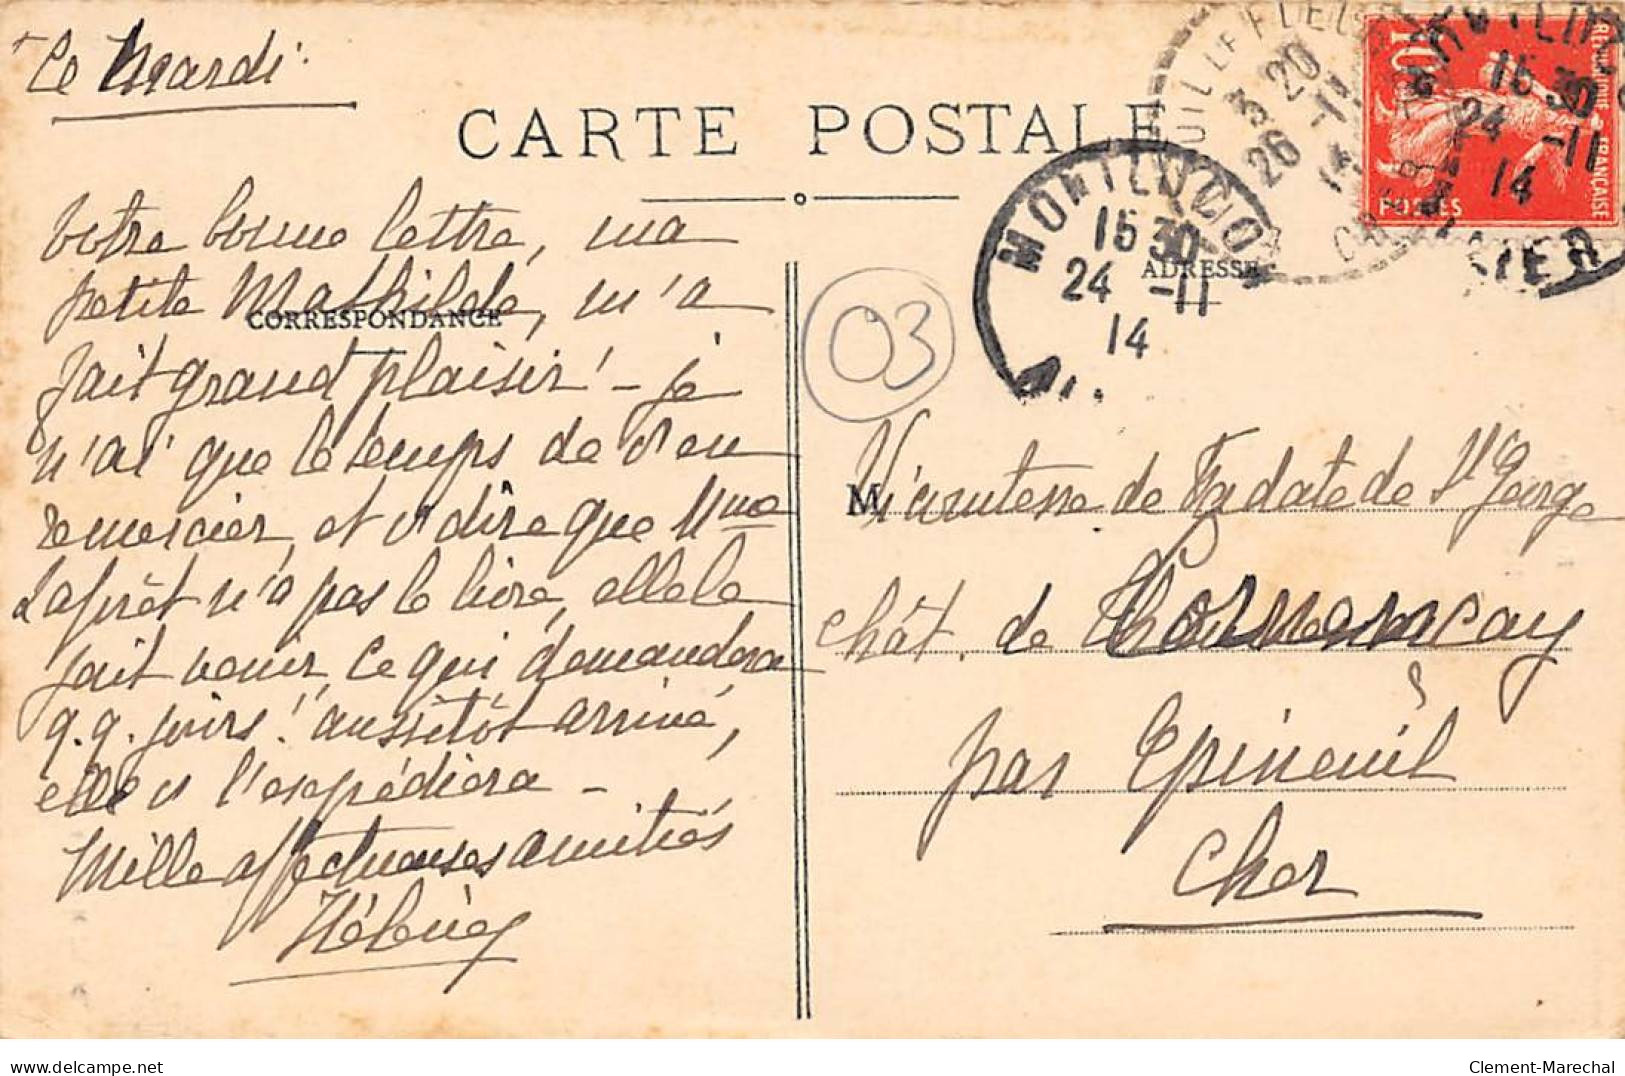 Le Mardi.
CARTE POSTALE
Votre bonne lettre, ma
petite Mathilde, m'a
CORRESPONDANCE
fait grand plaisir! - je
n'ai que le temps de v. en
remercier, et v. dire que Mme
Laforêt n'a pas le livre, elle le
fait venir, ce qui demandera
q.q. jours! aussitôt arrivé,
elle v. l'expédiera -
Mille affectueuses amitiés
03
MONTLUCON
15 30
24 -11
14
3 20
26 -11
14
15 30
24 -11
14
ALLIER
10
REPUBLIQUE FRANÇAISE
POSTES
ADRESSE
M
Vicomtesse de Fadate de St George
chât. de
par Epineuil
Cher
Clement-Marechal